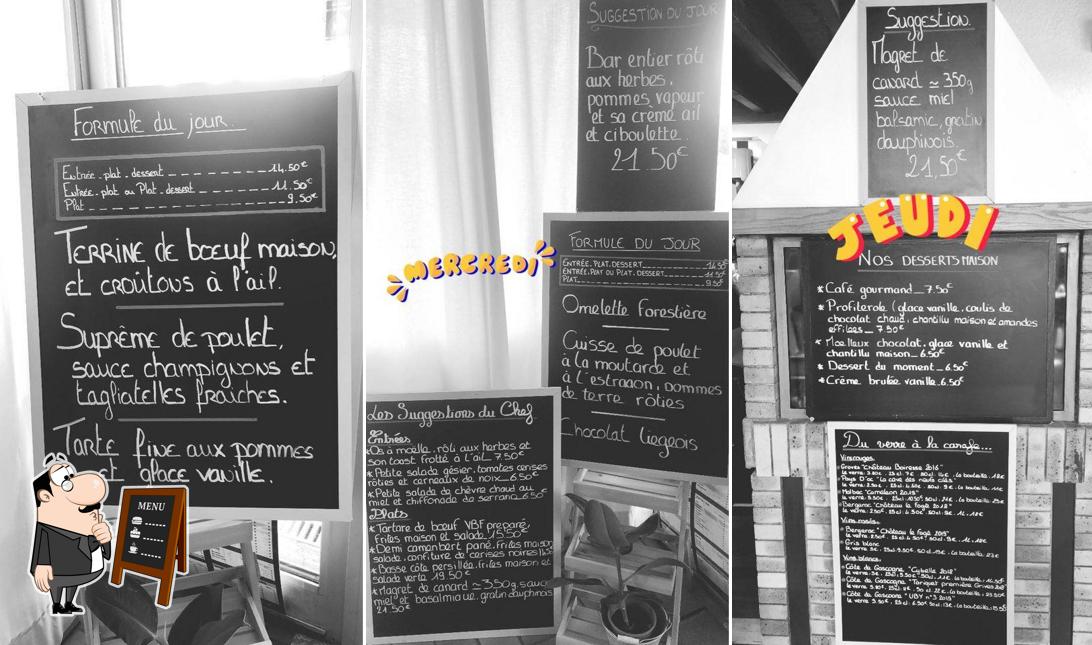 Formule du jour.
Entrée. plat. dessert 14.50€
Entrée. plat ou Plat. dessert 11.50€
Plat 9.50€
Terrine de bœuf maison,
et croûtons à l'ail.
Suprême de poulet,
sauce champignons et
tagliatelles fraîches.
Tarte fine aux pommes
et glace vanille.
MENU
MERCREDI
SUGGESTION DU JOUR
Bar entier rôti
aux herbes,
pommes vapeur
et sa crème ail
et ciboulette.
21.50€
FORMULE DU JOUR
ENTRÉE. PLAT. DESSERT 14.50€
ENTRÉE. PLAT OU PLAT. DESSERT 11.50€
PLAT 9.50€
Omelette Forestière
Cuisse de poulet
à la moutarde et
à l'estragon, pommes
de terre rôties
Chocolat liegeois
Les Suggestions du Chef
Entrées
*Os à moelle, rôti aux herbes et
son toast frotté à l'ail_7.50€
*Petite salade gésier, tomates cerises
rôties et cerneaux de noix_6.50€
*Petite salade de chèvre chaud au
miel et chiffonade de serrano_6.50€
Plats
*Tartare de bœuf VBF preparé,
frites maison et salade_15.50€
*Demi camembert pané, frites maison
salade, confiture de cerises noires
*Basse côte persillée, frites maison et
salade verte 19.50€
*Magret de canard ≃350g, sauce
miel et balsamique, gratin dauphinois
21.50€
Suggestion.
Magret de
canard ≃ 350g
sauce miel
balsamic, gratin
dauphinois.
21,50€
JEUDI
NOS DESSERTS MAISON
* Café gourmand_7.50€
* Profiterole (glace vanille, coulis de
chocolat chaud, chantilly maison et amandes
effilées_ 7.50€
* Moelleux chocolat, glace vanille et
chantilly maison_6.50€
* Dessert du moment_6.50€
* Crème brulée vanille_6.50€
Du verre à la carafe...
Vins rouges.
Graves "Château Boiresse 2016"
Pays D'oc "La cave des neufs clés"
Malbac "Caméléon 2018"
Bergerac "Château le fagé 2018"
Vins rosés.
Bergerac "Château le fagé 2019"
Gris blanc
Vins blancs.
Côte de Gascogne "Cybelle 2018"
Côte de Gascogne "Tariquet première Grives 2018"
Côte de Gascogne "UBY n°3 2019"